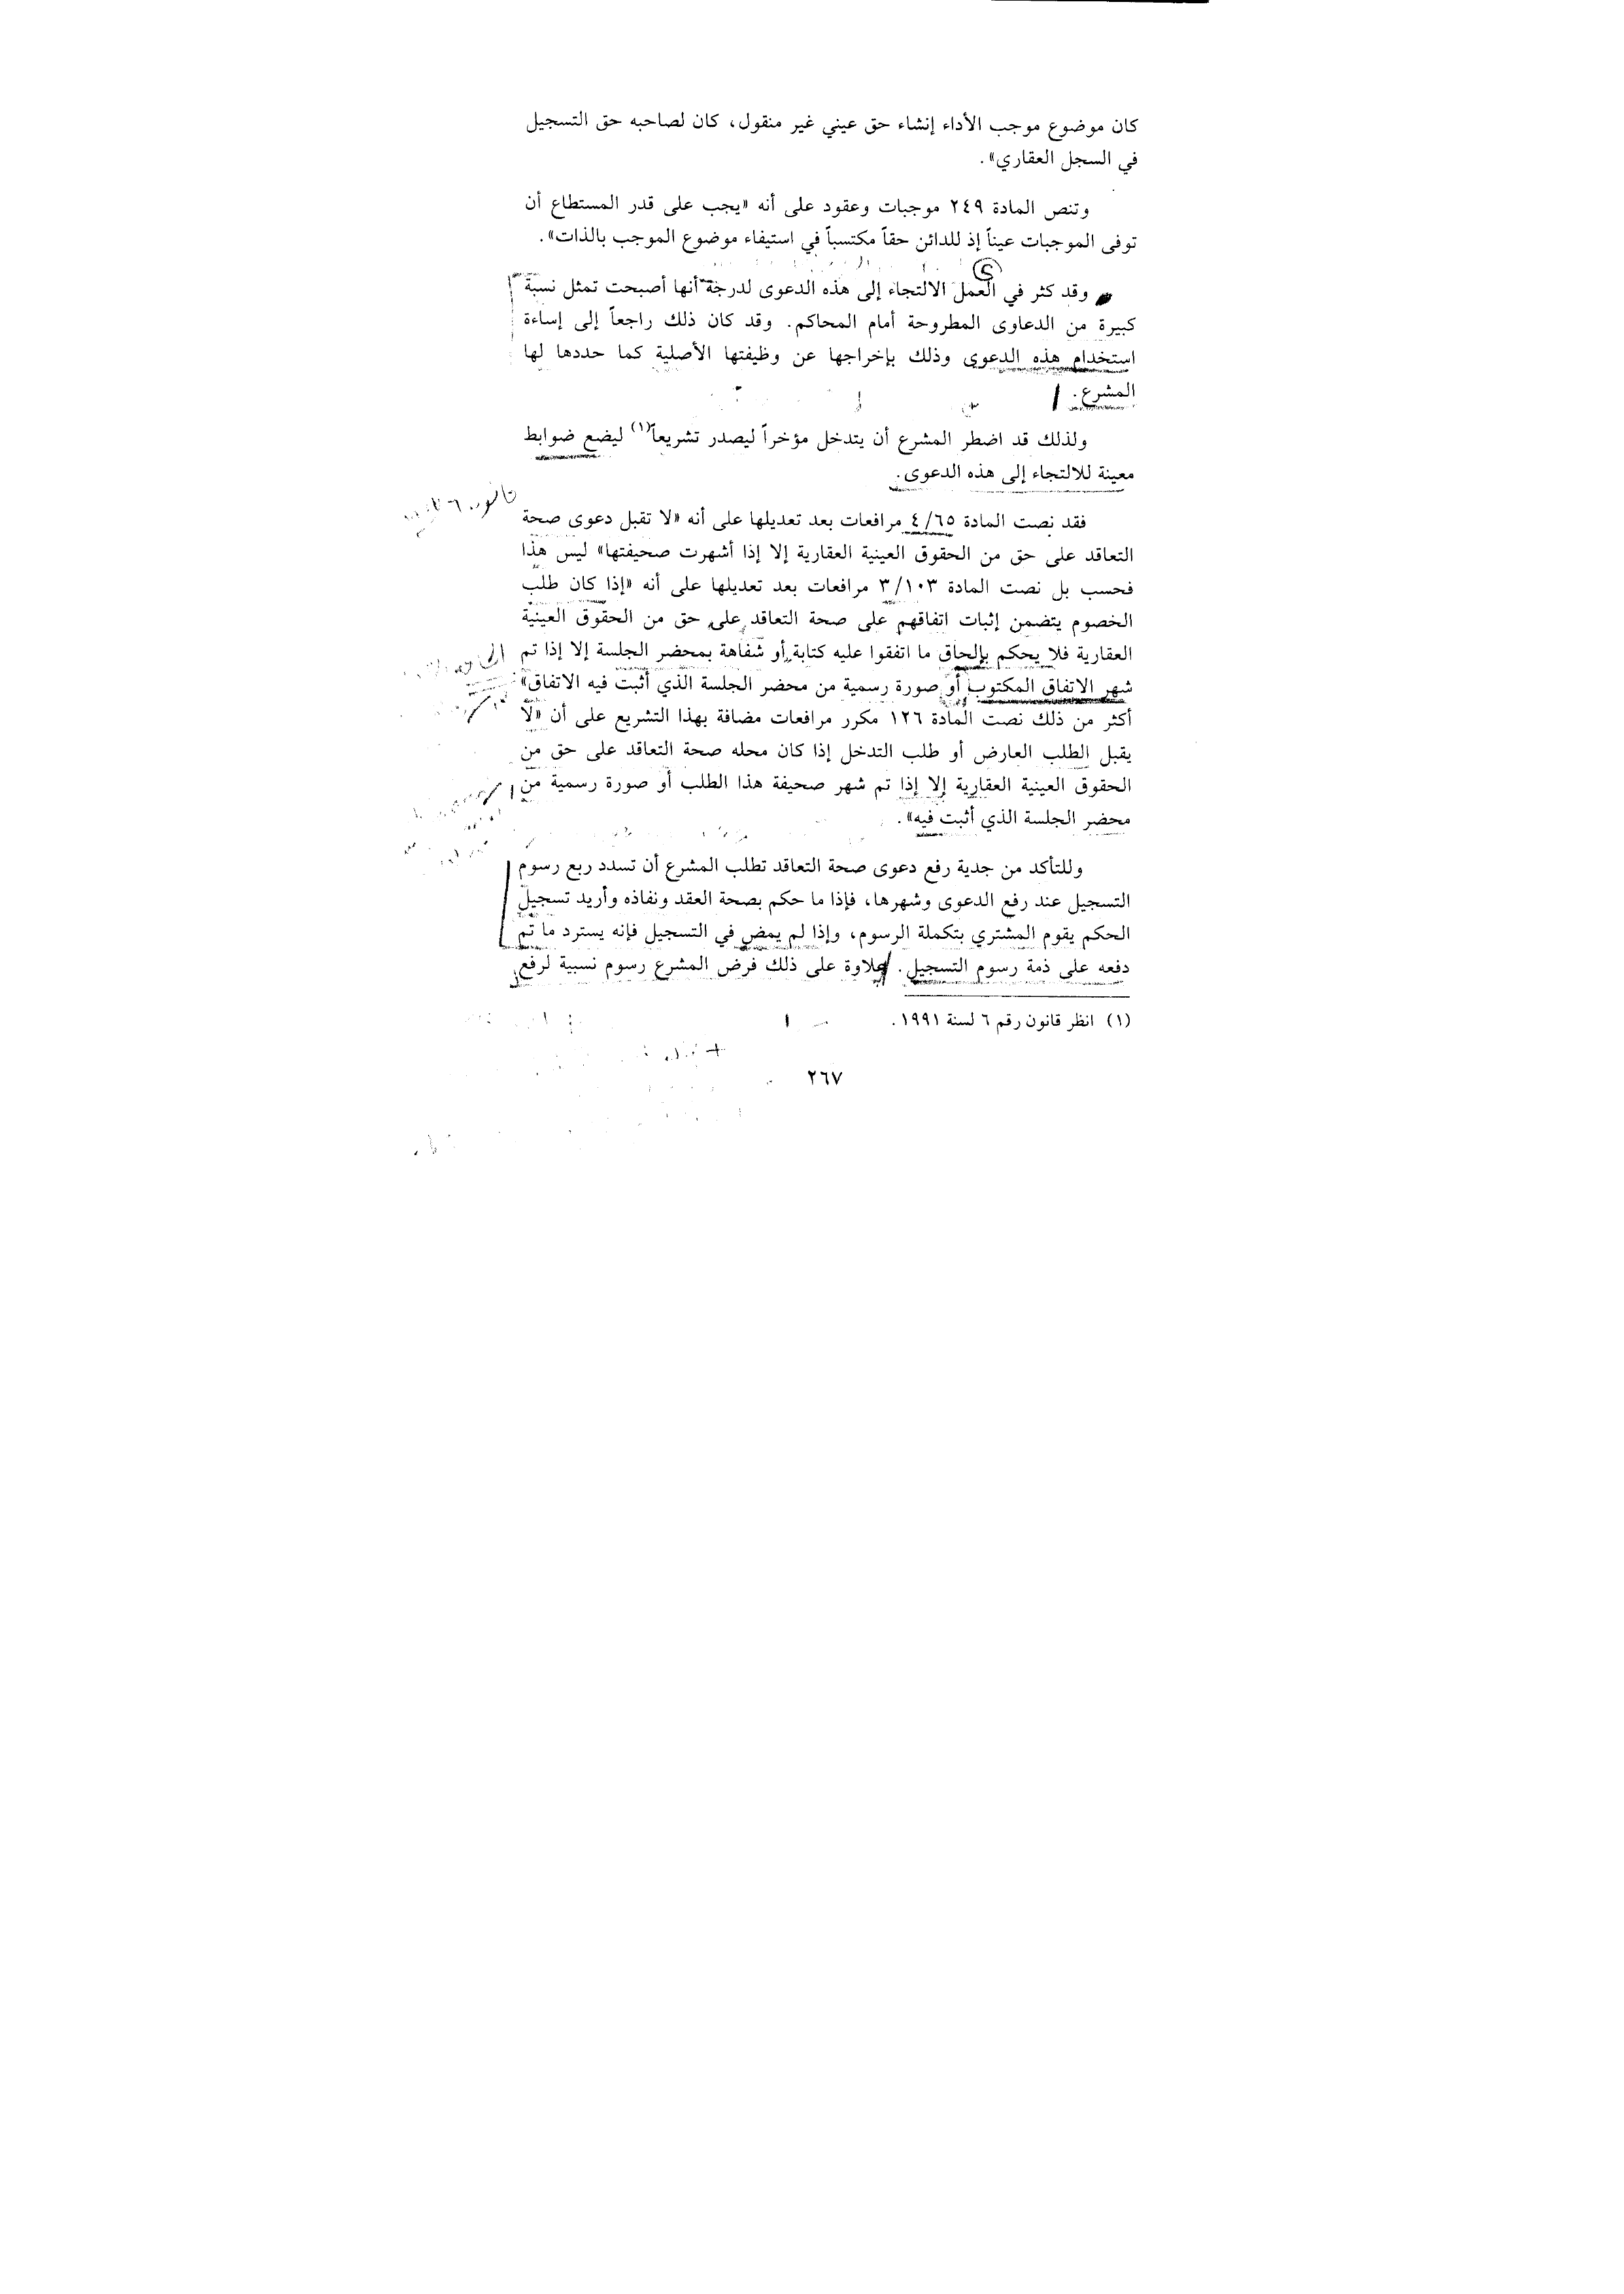 كان موضوع موجب الأداء إنشاء حق عيني غير منقول، كان لصاحبه حق التسجيل
في السجل العقاري».
وتنص المادة ٢٤٩ موجبات وعقود على أنه «يجب على قدر المستطاع أن
توفى الموجبات عيناً إذ للدائن حقاً مكتسباً في استيفاء موضوع الموجب بالذات».
وقد كثر في العمل الالتجاء إلى هذه الدعوى لدرجة أنها أصبحت تمثل نسبة
كبيرة من الدعاوى المطروحة أمام المحاكم. وقد كان ذلك راجعاً إلى إساءة
استخدام هذه الدعوى وذلك بإخراجها عن وظيفتها الأصلية كما حددها لها
المشرع.
ولذلك قد اضطر المشرع أن يتدخل مؤخراً ليصدر تشريعاً(١) ليضع ضوابط
معينة للالتجاء إلى هذه الدعوى.
قانون ٦
فقد نصت المادة ٤/٦٥ مرافعات بعد تعديلها على أنه «لا تقبل دعوى صحة
التعاقد على حق من الحقوق العينية العقارية إلا إذا أشهرت صحيفتها» ليس هذا
فحسب بل نصت المادة ٣/١٠٣ مرافعات بعد تعديلها على أنه «إذا كان طلب
الخصوم يتضمن إثبات اتفاقهم على صحة التعاقد على حق من الحقوق العينية
العقارية فلا يحكم بإلحاق ما اتفقوا عليه كتابة أو شفاهة بمحضر الجلسة إلا إذا تم
شهر الاتفاق المكتوب أو صورة رسمية من محضر الجلسة الذي أثبت فيه الاتفاق»
أكثر من ذلك نصت المادة ١٢٦ مكرر مرافعات مضافة بهذا التشريع على أن «لا
يقبل الطلب العارض أو طلب التدخل إذا كان محله صحة التعاقد على حق من
الحقوق العينية العقارية إلا إذا تم شهر صحيفة هذا الطلب أو صورة رسمية من
محضر الجلسة الذي أثبت فيه».
وللتأكد من جدية رفع دعوى صحة التعاقد تطلب المشرع أن تسدد ربع رسوم
التسجيل عند رفع الدعوى وشهرها، فإذا ما حكم بصحة العقد ونفاذه وأريد تسجيل
الحكم يقوم المشتري بتكملة الرسوم، وإذا لم يمض في التسجيل فإنه يسترد ما تم
دفعه على ذمة رسوم التسجيل. علاوة على ذلك فرض المشرع رسوم نسبية لرفع
(١) انظر قانون رقم ٦ لسنة ١٩٩١.
٢٦٧